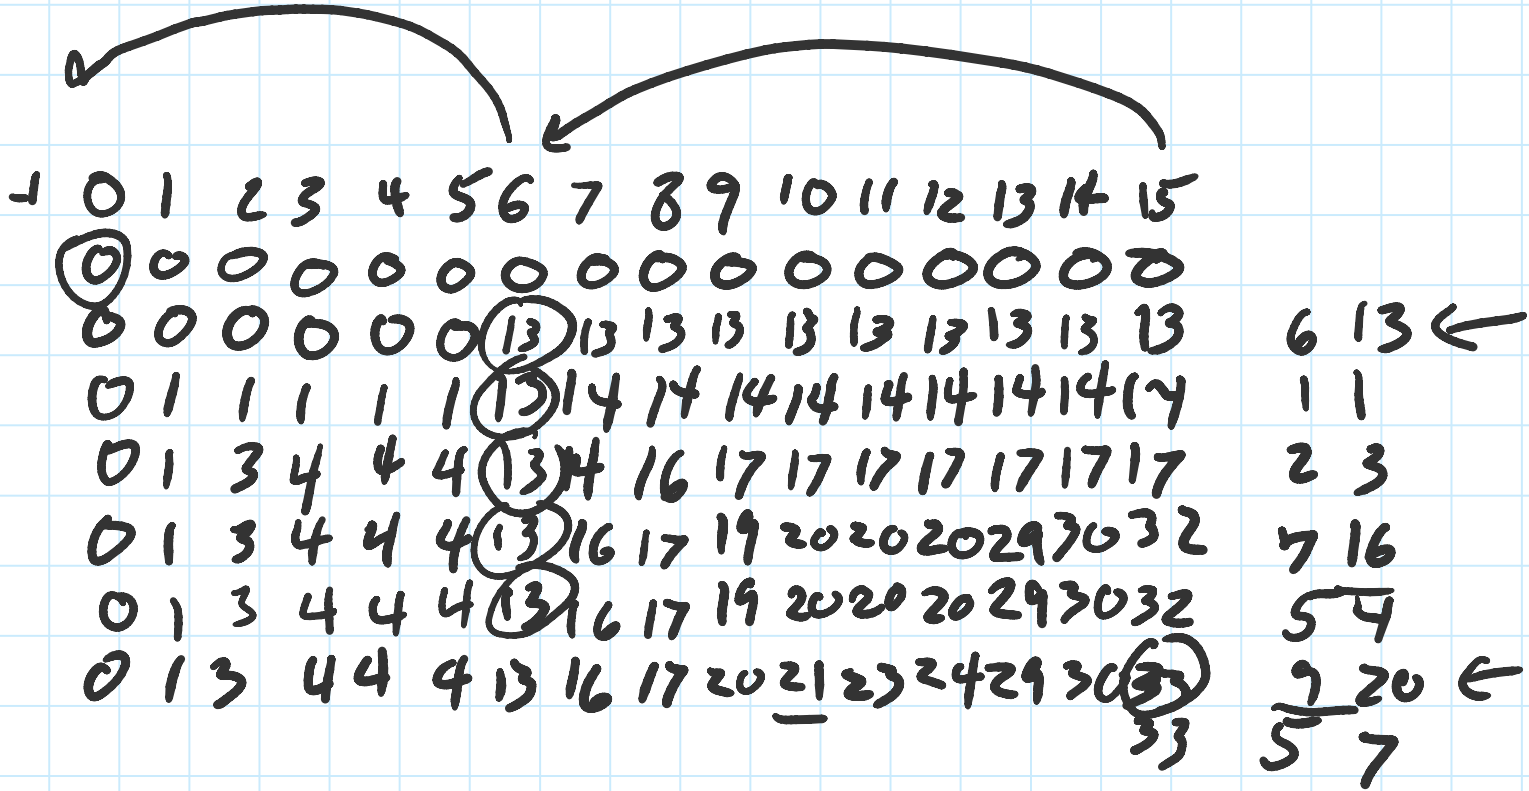 -1 0 1 2 3 4 5 6 7 8 9 10 11 12 13 14 15
0 0 0 0 0 0 0 0 0 0 0 0 0 0 0 0
0 0 0 0 0 0 13 13 13 13 13 13 13 13 13 13 6 13
0 1 1 1 1 1 13 14 14 14 14 14 14 14 14 14 1 1
0 1 3 4 4 4 13 14 16 17 17 17 17 17 17 17 2 3
0 1 3 4 4 4 13 16 17 19 20 20 20 29 30 32 7 16
0 1 3 4 4 4 13 16 17 19 20 20 20 29 30 32 5 4
0 1 3 4 4 4 13 16 17 20 21 23 24 29 30 33 9 20
33 5 7